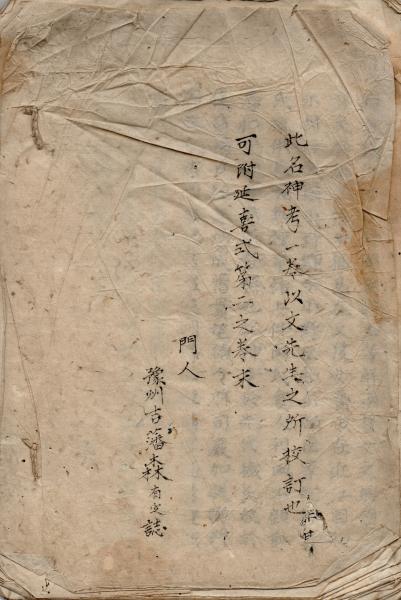 此名神考一巻以文先生之所挍訂也
可附延喜式第二之巻末
門人
豫州吉藩森有定誌